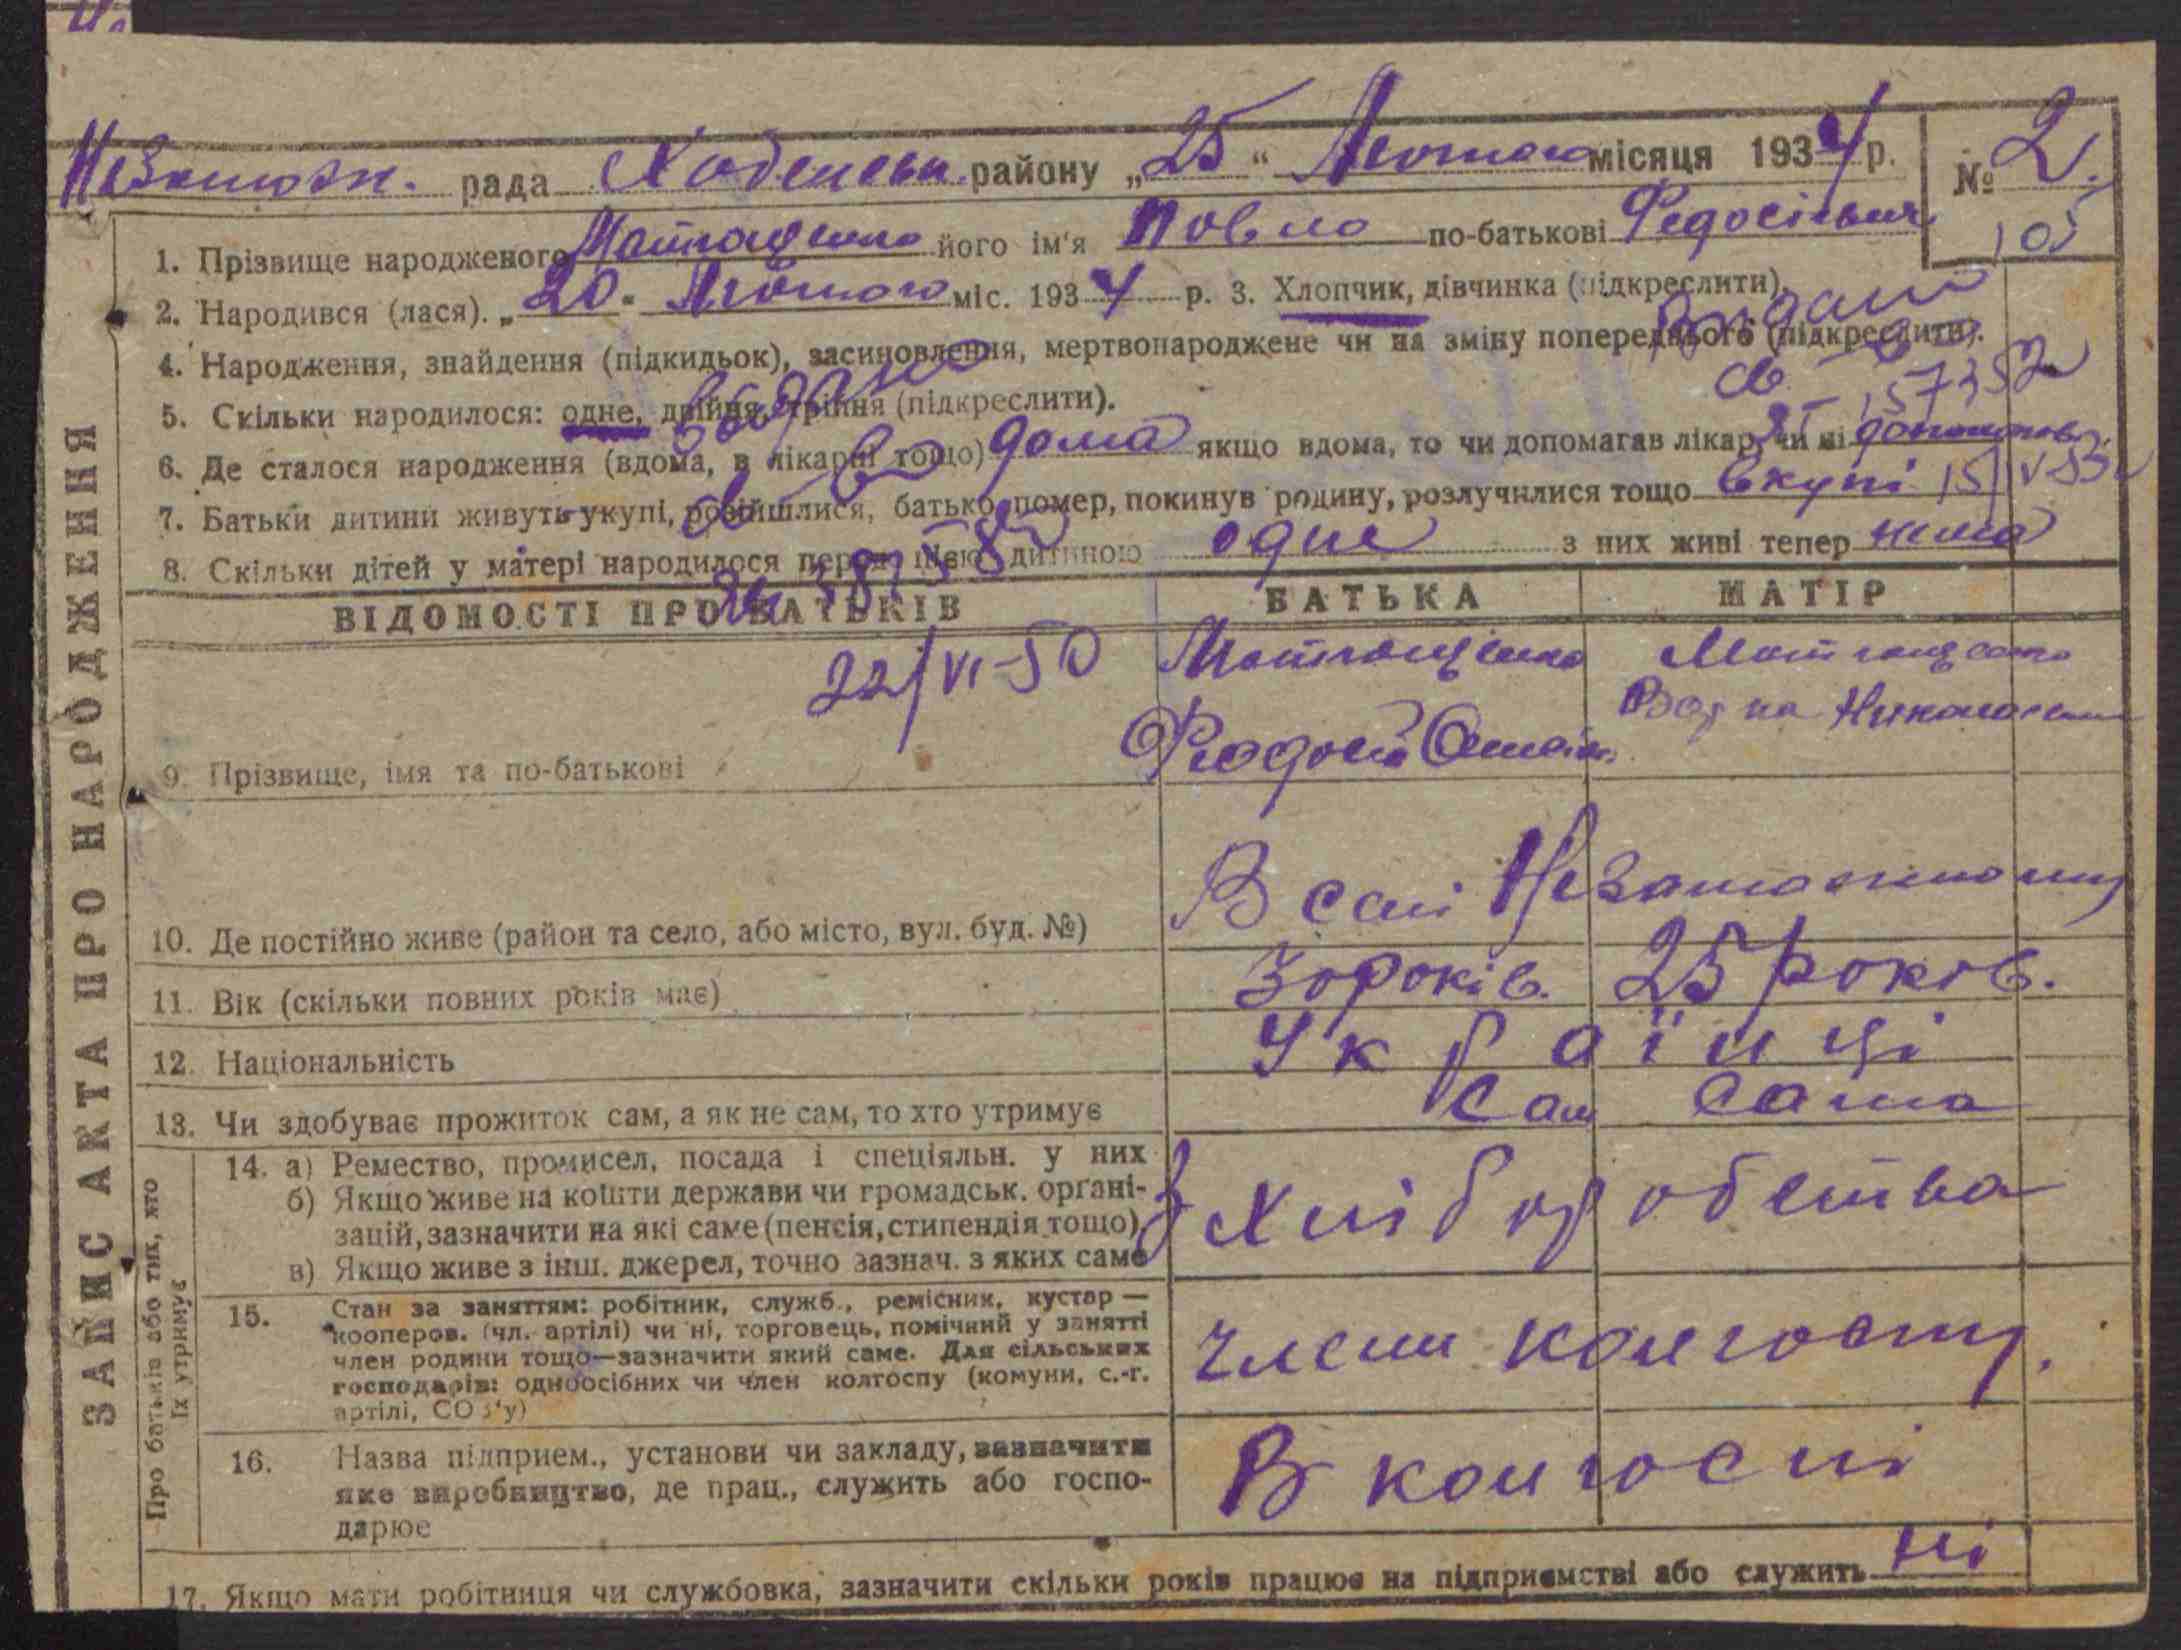 Незамож. рада район​у „25“ Лютого місяця 1934 р. № 2
105
1. Прізвище народженого його ім'я Повло по-батькові Федосієвич
2. Народився (лася). „20“ Лютого міс. 1934 р. 3. Хлопчик, дівчинка (підкреслити).
4. Народження, знайдення (підкидьок), засиновлення, мертвонароджене чи на зміну попереднього (підкреслити).
5. Скільки народилося: одне, двійня, трійня (підкреслити).
6. Де сталося народження (вдома, в лікарні тощо) дома якщо вдома, то чи допомагав лікар, чи ні
7. Батьки дитини живуть укупі, розійшлися, батько помер, покинув родину, розлучилися тощо вкупі
8. Скільки дітей у матері народилося перед цією дитиною одне з них живі тепер нема
Видано
св-во
157352
15/V-53
видано
св-во
22/VI-50
ЗАПИС АКТА ПРО НАРОДЖЕННЯ
ВІДОМОСТІ ПРО БАТЬКІВ БАТЬКА МАТІР
9. Прізвище, імя та по-батькові
Федосій
10. Де постійно живе (район та село, або місто, вул. буд. №) В селі Незаможному
11. Вік (скільки повних років має) 30 років. 25 років.
12. Національність Українці
13. Чи здобуває прожиток сам, а як не сам, то хто утримує сам сама
Про батьків або тих, хто
їх утримує
14. а) Ремество, промисел, посада і спеціяльн. у них
б) Якщо живе на кошти держави чи громадськ. органі-
зацій, зазначити на які саме (пенсія, стипендія тощо)
в) Якщо живе з інш. джерел, точно зазнач. з яких саме
З хліборобства
15. Стан за заняттям: робітник, служб., ремісник, кустар —
кооперов. (чл. артілі) чи ні, торговець, помічний у занятті
член родини тощо—зазначити який саме. Для сільських
господарів: одноосібних чи член колгоспу (комуни, с.-г.
артілі, СОЗ'у)
члени колгоспу.
16. Назва підприєм., установи чи закладу, зазначити
яке виробництво, де прац., служить або госпо-
дарює
В колгоспі
17. Якщо мати робітниця чи службовка, зазначити скільки років працює на підприємстві або служить ні